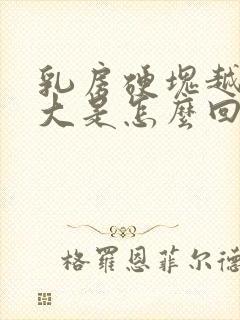 乳房硬塊越
大是怎麼回
格羅恩菲尔德